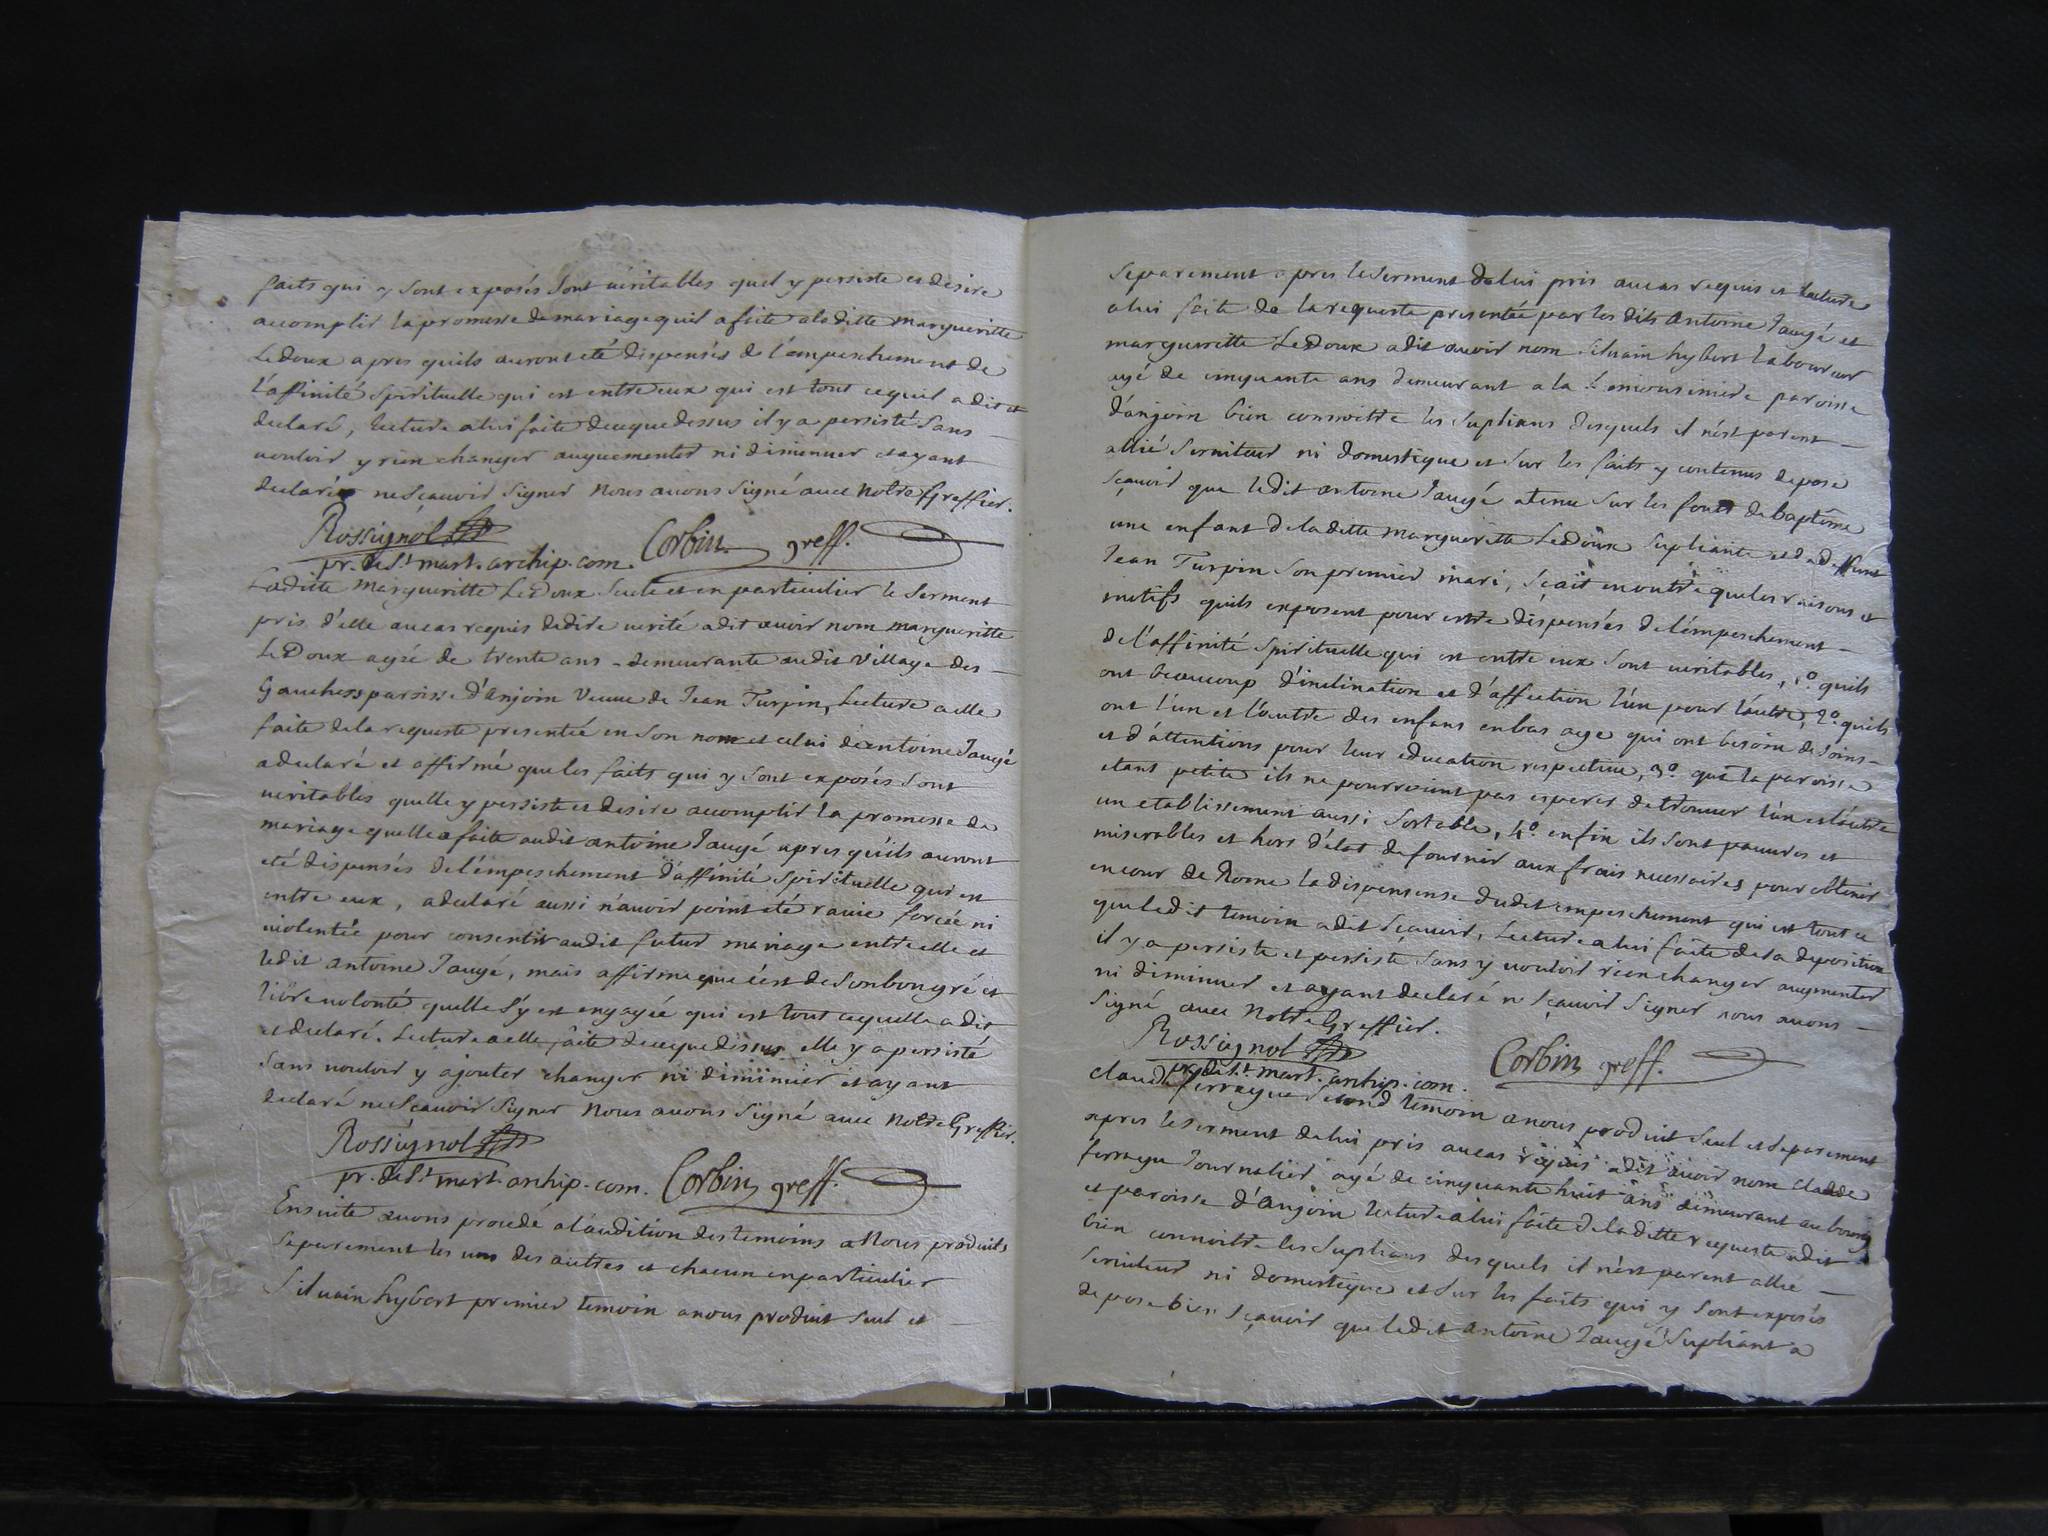 faits qui y sont exposés sont véritables quel y persiste et desire
acomplir la promesse de mariage quil a faite a laditte margueritte
LeDoux apres quils auront eté dispensés de l'empeschement de
l'affinité spirituelle qui est entre eux qui est tout cequil a dit et
declaré, lecture a lui faite decequedessus il y a persisté sans
vouloir y rien changer auguementer ni dimenuer et ayant
declaré ne sçavoir signer nous avons signé avec notre Greffier.
Rossignol
pr. de St. mart. archip. com. Corbin greff.
Laditte margueritte LeDoux seule et en particulier le serment
pris d'elle au cas requis de dire verité a dit avoir nom margueritte
LeDoux agée de trente ans demeurante audit village des
Gauchers paroisse d'Anjoin veuve de Jean Turpin, Lecture a elle
faite de la requeste presentée en son nom et celui de antoine Jaugé
a declaré et affirmé que les faits qui y sont exposés sont
veritables quelle y persiste et desire acomplir la promesse de
mariage quelle a faite audit antoine Jaugé apres qu'ils auront
eté dispensés de l'empeschement d'affinité spirituelle qui est
entre eux, a declaré aussi n'avoir point eté ravie forcée ni
violentée pour consentir audit futur mariage entre elle et
ledit antoine Jaugé, mais affirme que c'est de son bon gré et
libre volonté quelle s'y est engagée qui est tout cequelle a dit
et declaré. Lecture a elle faite decequedessus elle y a persisté
sans vouloir y ajouter changer ni diminuer et ayant
declaré ne sçavoir signer nous avons signé avec notre Greffier.
Rossignol
pr. de St. mart. archip. com. Corbin greff.
Ensuite avons procedé a l'audition des temoins a Nous produits
separement les uns des autres et chacun en particulier
Silvain hybert premier temoin a nous produit seul et
separement apres le serment de lui pris au cas requis et lecture
a lui faite de la requeste presentée par les dits Antoine Jaugé et
margueritte LeDoux a dit avoir nom silvain hybert laboureur
agé de cinquante ans demeurant a la paroisse
d'anjoin bien connoitre les suplians desquels il n'est parent
allié serviteur ni domestique et sur les faits y contenus depose
sçavoir que ledit antoine Jaugé a tenu sur les fonts de baptême
une enfant de laditte margueritte LeDoux supliante et de deffunt
Jean Turpin son premier mari, sçait en outre que les raisons et
motifs quils exposent pour estre dispensés de l'empeschement
de l'affinité spirituelle qui est entre eux sont veritables, 1º. quils
ont beaucoup d'inclination et d'affection l'un pour l'autre, 2º. quils
ont l'un et l'autre des enfans en bas age qui ont besoin de soins
et d'attentions pour leur education respective, 3º. que la paroisse
etant petite ils ne pourroient pas esperer de trouver l'un et l'autre
un etablissement aussi sortable, 4º. enfin ils sont pauvres et
miserables et hors d'état de fournir aux frais necessaires pour obtenir
en cour de Rome la dispensense dudit empeschement qui est tout ce
que ledit temoin a dit sçavoir, Lecture a lui faite de sa deposition
il y a persiste et persiste sans y vouloir rien changer augmenter
ni diminuer et ayant declaré ne sçavoir signer nous avons
signé avec notre Greffier.
Rossignol
pr. de St. mart. archip. com. Corbin greff.
claude ferragu second temoin a nous produit seul et separement
apres le serment de lui pris au cas requis a dit avoir nom claude
ferragu Journalier agé de cinquante huit ans demeurant au bourg
et paroisse d'anjoin lecture a lui faite de la ditte requeste a dit
bien connoitre les suplians desquels il n'est parent allié
serviteur ni domestique et sur les faits qui y sont exposés
depose bien sçavoir que ledit antoine Jaugé supliant a